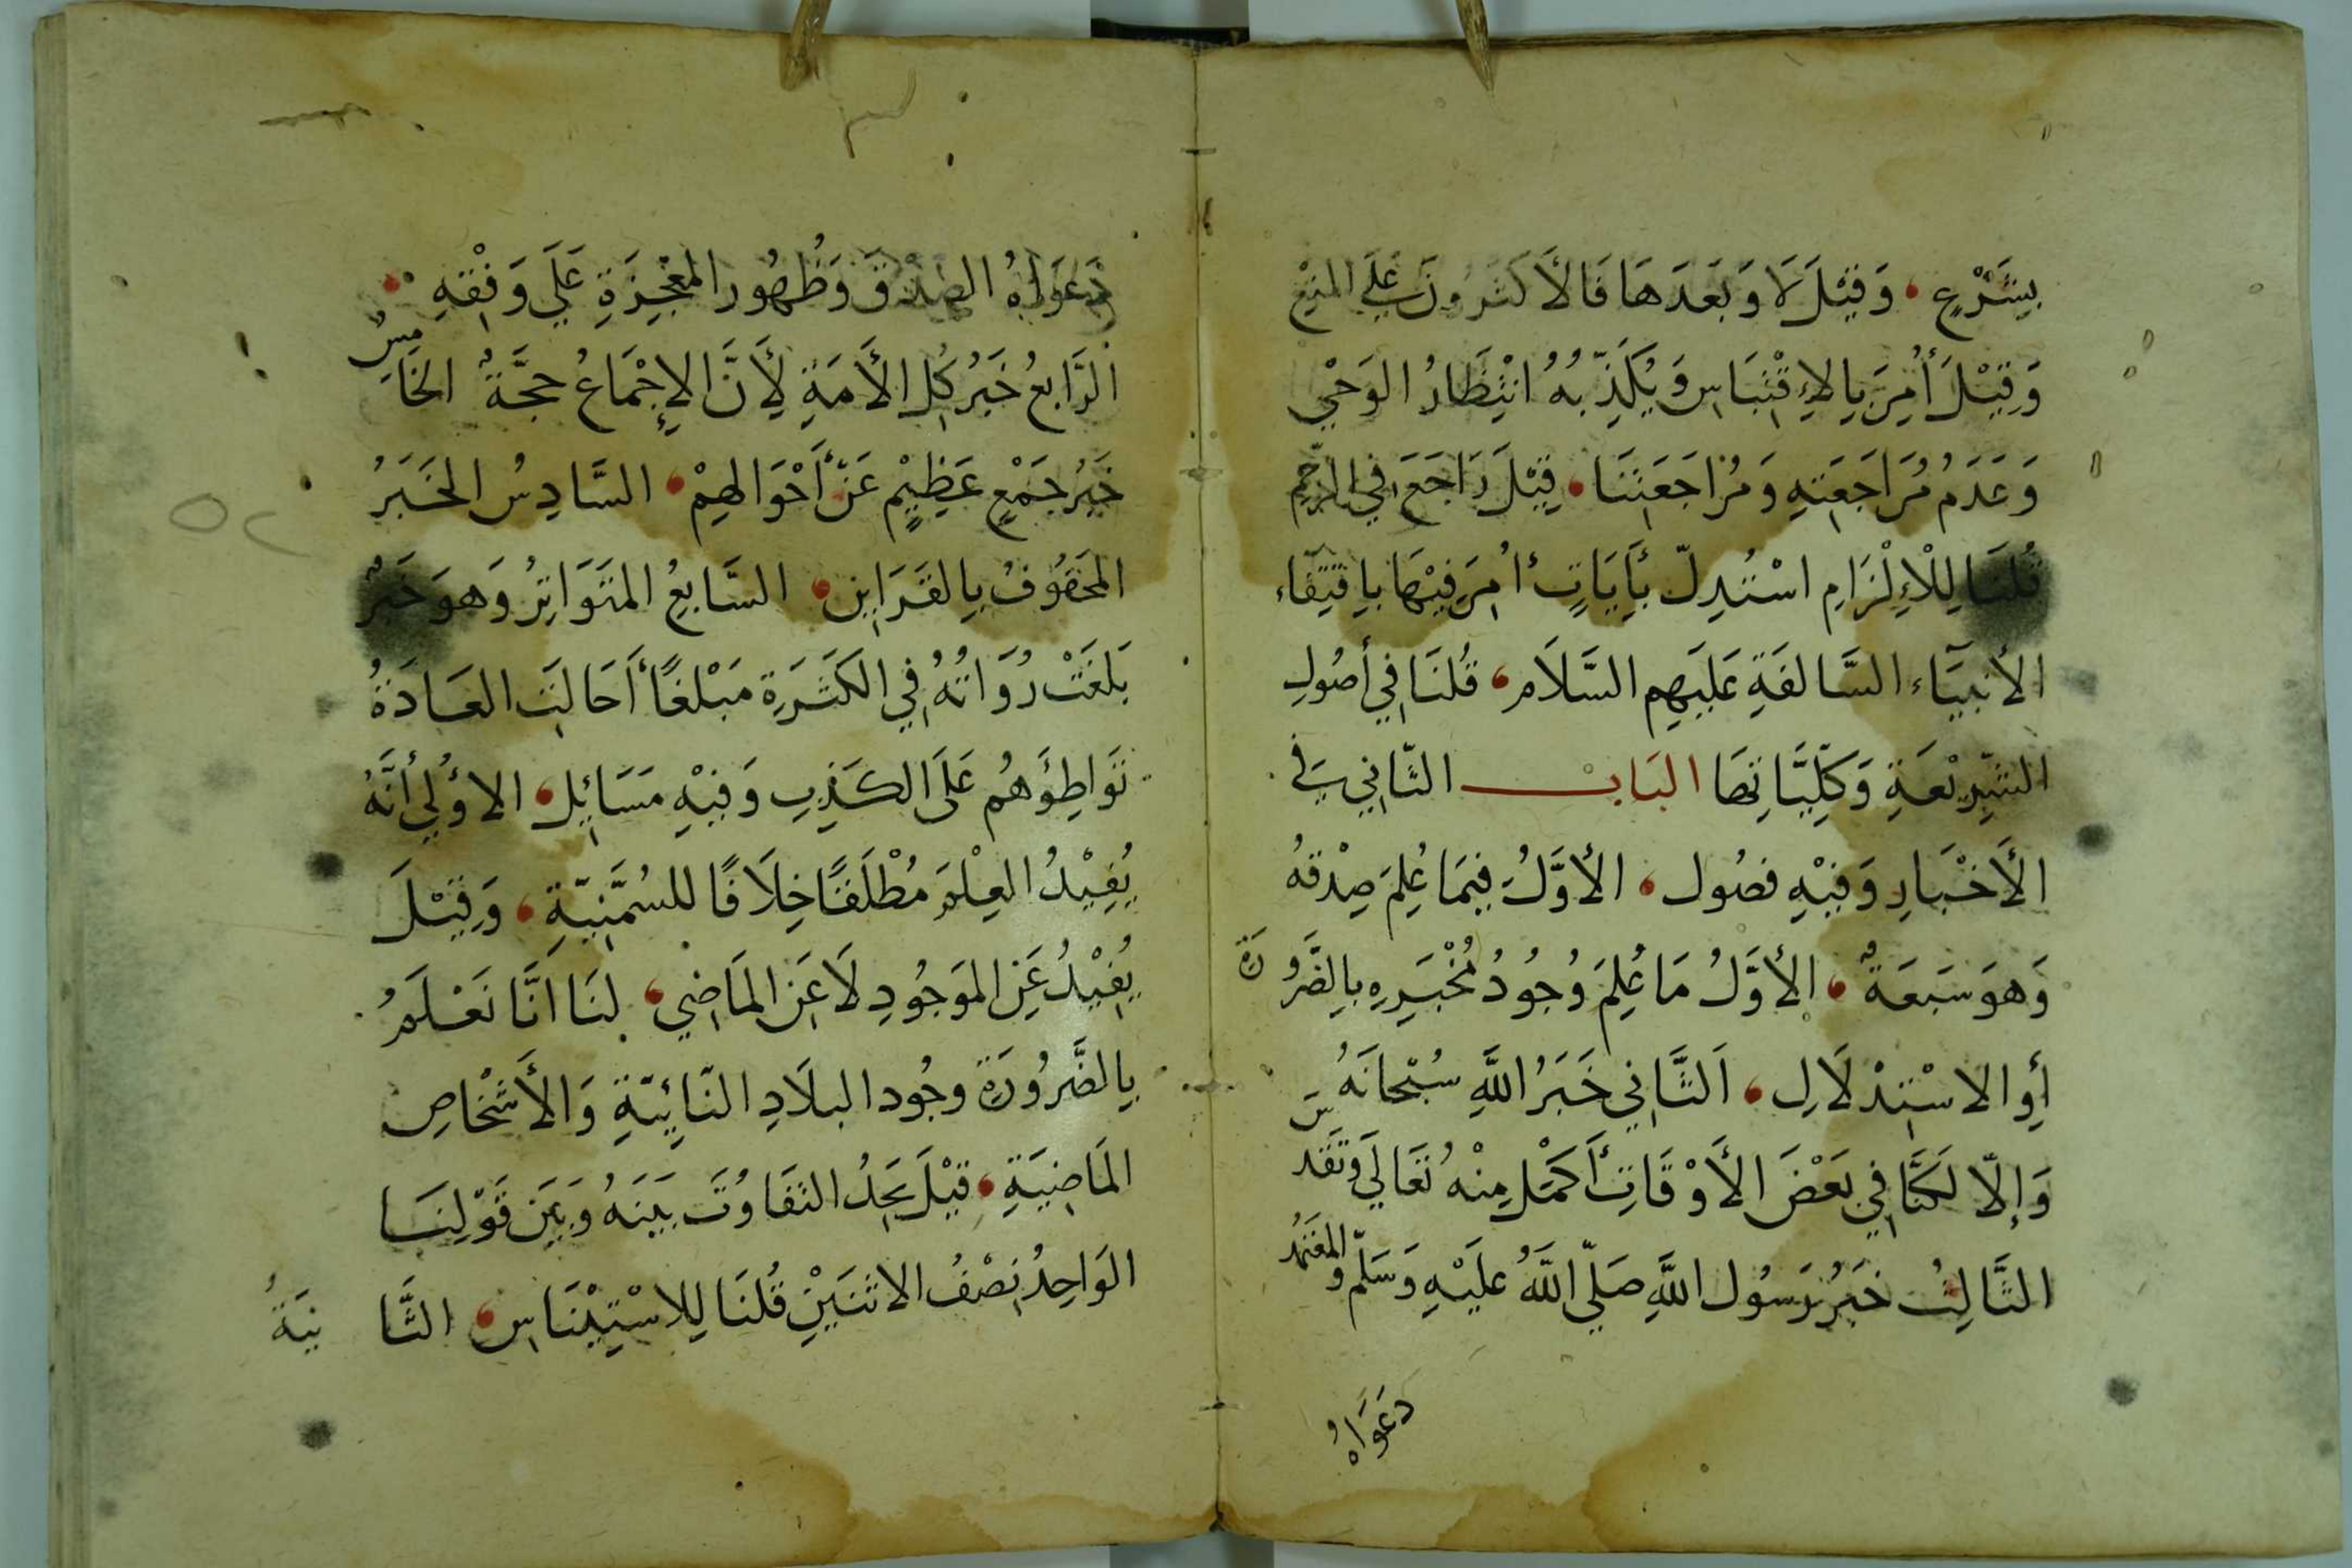 بِشَرْعٍ ، وَقِيْلَ لَا وَبَعْدَهَا فَالأَكْثَرُونَ عَلَى المَنْعِ
وَقِيْلَ أُمِرَ بِالإِقْتِبَاسِ وَيُكَذِّبُهُ انْتِظَارُ الوَحْيِ
وَعَدَمُ مُرَاجَعَتِهِ وَمُرَاجَعَتِنَا ، قِيْلَ رَاجَعَ فِي الرَّجْمِ
قُلْنَا لِلْإِلْزَامِ اسْتُدِلّ بِأَيَاتٍ أُمِرَ فِيْهَا بِاقْتِفَاء
الأنبيَآء السَّالفَةِ عَلَيهِم السَّلَام ، قُلنَا فِي أصُولِ
الشَّرِيْعَةِ وَكُلِّيَّاتِهَا البَاب الثَّانِي فِي
الأَخْبَارِ وَفِيْهِ فصُول ، الأوَّلُ فِيمَا عُلِمَ صِدْقهُ
وَهوَ سَبعَةٌ ، الأوَّلُ مَا عُلِمَ وُجُودُ مُخْبَرِهِ بِالضَّرُورَة
أوِ الاسْتِدْلَالِ ، اَلثَّانِي خَبَرُ اللَّهِ سُبْحانَهُ
وَإلّا لَكُنَّا فِي بَعْضَ الأَوْقَاتِ أَكْمَل مِنْهُ تَعَالَي وَتَقَدسَ
الثَّالِثُ خَبَرُ رَسُول اللَّهِ صَلّى اللَّهُ عليْهِ وَسَلّم وَالمعْتَمَدُ
دَعْوَاهُ
دَعوَاهُ الصِدْقَ وَظُهُور المعْجِزَةِ عَلَي وَفْقِهِ ،
الرَّابعُ خَبَرُ كُل الأُمَةِ لِأَنَّ الإِجْمَاعُ حجَّةٌ الخَامِسُ
خَبَرُ جَمْعٍ عَظِيْمٍ عَنْ أَحْوَالهِمْ ، السَّادِسُ الخَبَرُ
المَحْفُوفُ بِالقَرَاين ، السَّابعُ المتَوَاتِرُ وَهوَ خَبَرٌ
بَلَغَتْ رُوَاتُهُ فِي الكَثرَةِ مَبْلغًا أَحَالَتِ العَادَةُ
تَوَاطِؤَهُم عَلَى الكَذِبِ وَفِيْهِ مَسَائِل ، الاؤلي أنَّهُ
يُفِيْدُ العِلْمَ مُطْلَقًا خِلَافًا للسُمَّنِيّةِ ، وَقِيْلَ
يُفِيْدُ عَنِ المَوجُودِ لَا عَنِ المَاضِي ، لنَا اَنَّا نَعْلَمُ
بِالضَّرُورَةِ وجُود البلَادِ النّائِيّةِ وَالأَشْخَاصِ
المَاضِيَةِ ، قِيْلَ يَجِدُ التفَاوُتَ بَيْنَهُ وَبَيْنَ قَوْلِنَا
الوَاحِدُ نِصْفُ الاثنَيْنِ قُلنَا لِلاسْتِيْنَاس ، الثَّانيَةُ
٥٢